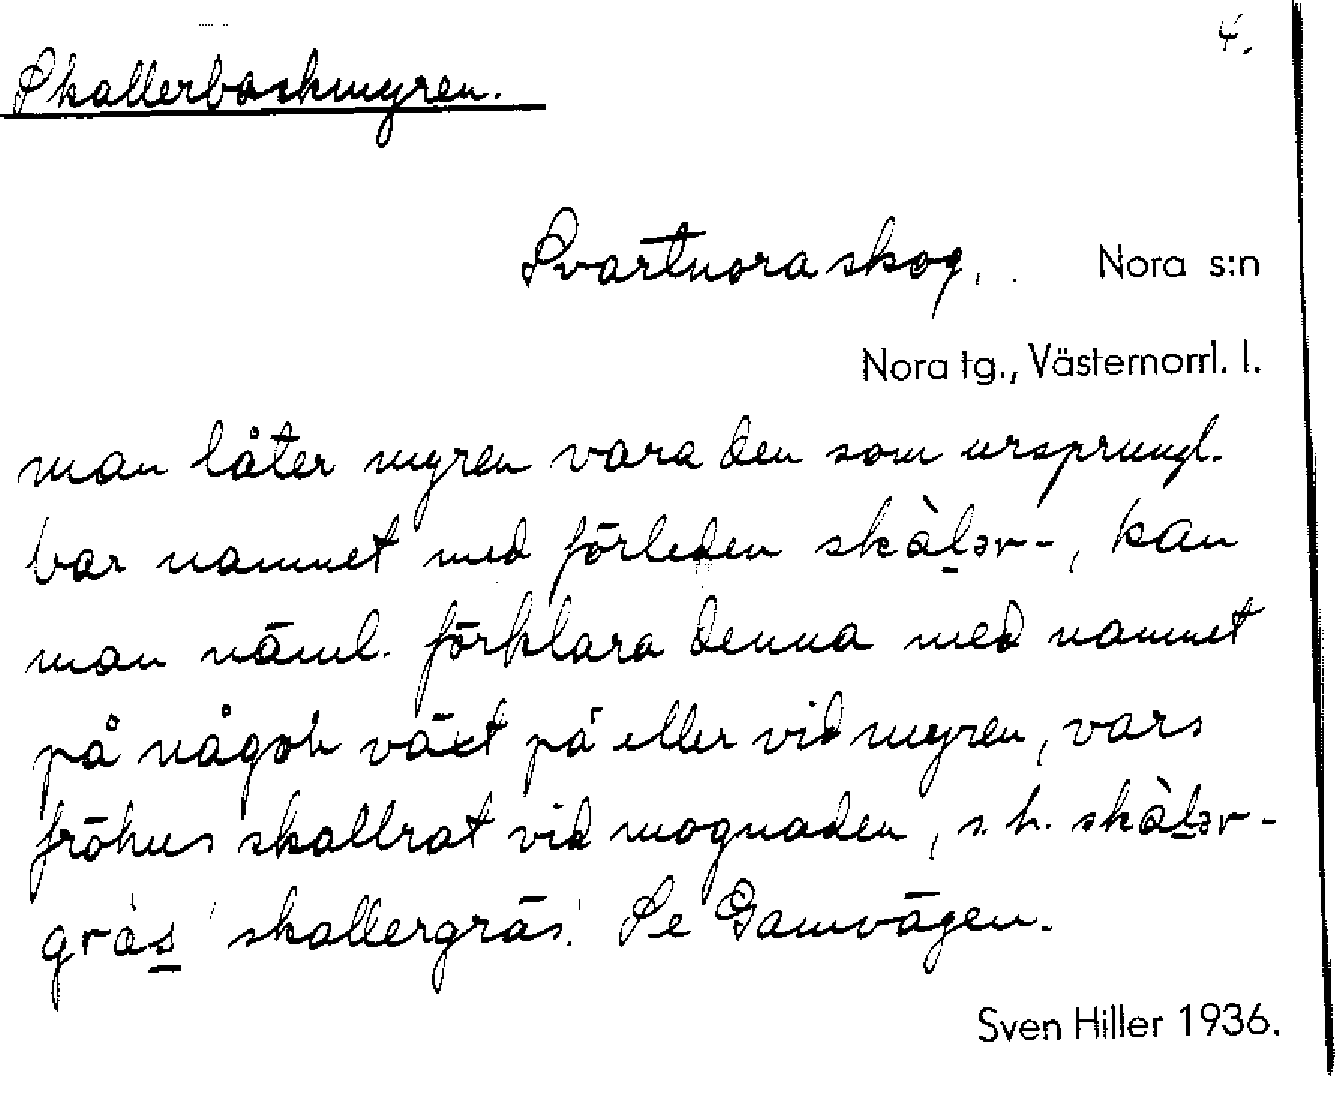 4.
Skallerbackmyren.
Svartnora skog. Nora s:n
Nora tg., Västernorrl. l.
man låter myren vara den som ursprungl.
bar namnet med förleden skàlər-, kan
man näml. förklara denna med namnet
på någon växt på eller vid myren, vars
fröhus skallrat vid mognaden, s.k. skàlər-
gràs 'skallergräs'. Se Gamvägen.
Sven Hiller 1936.